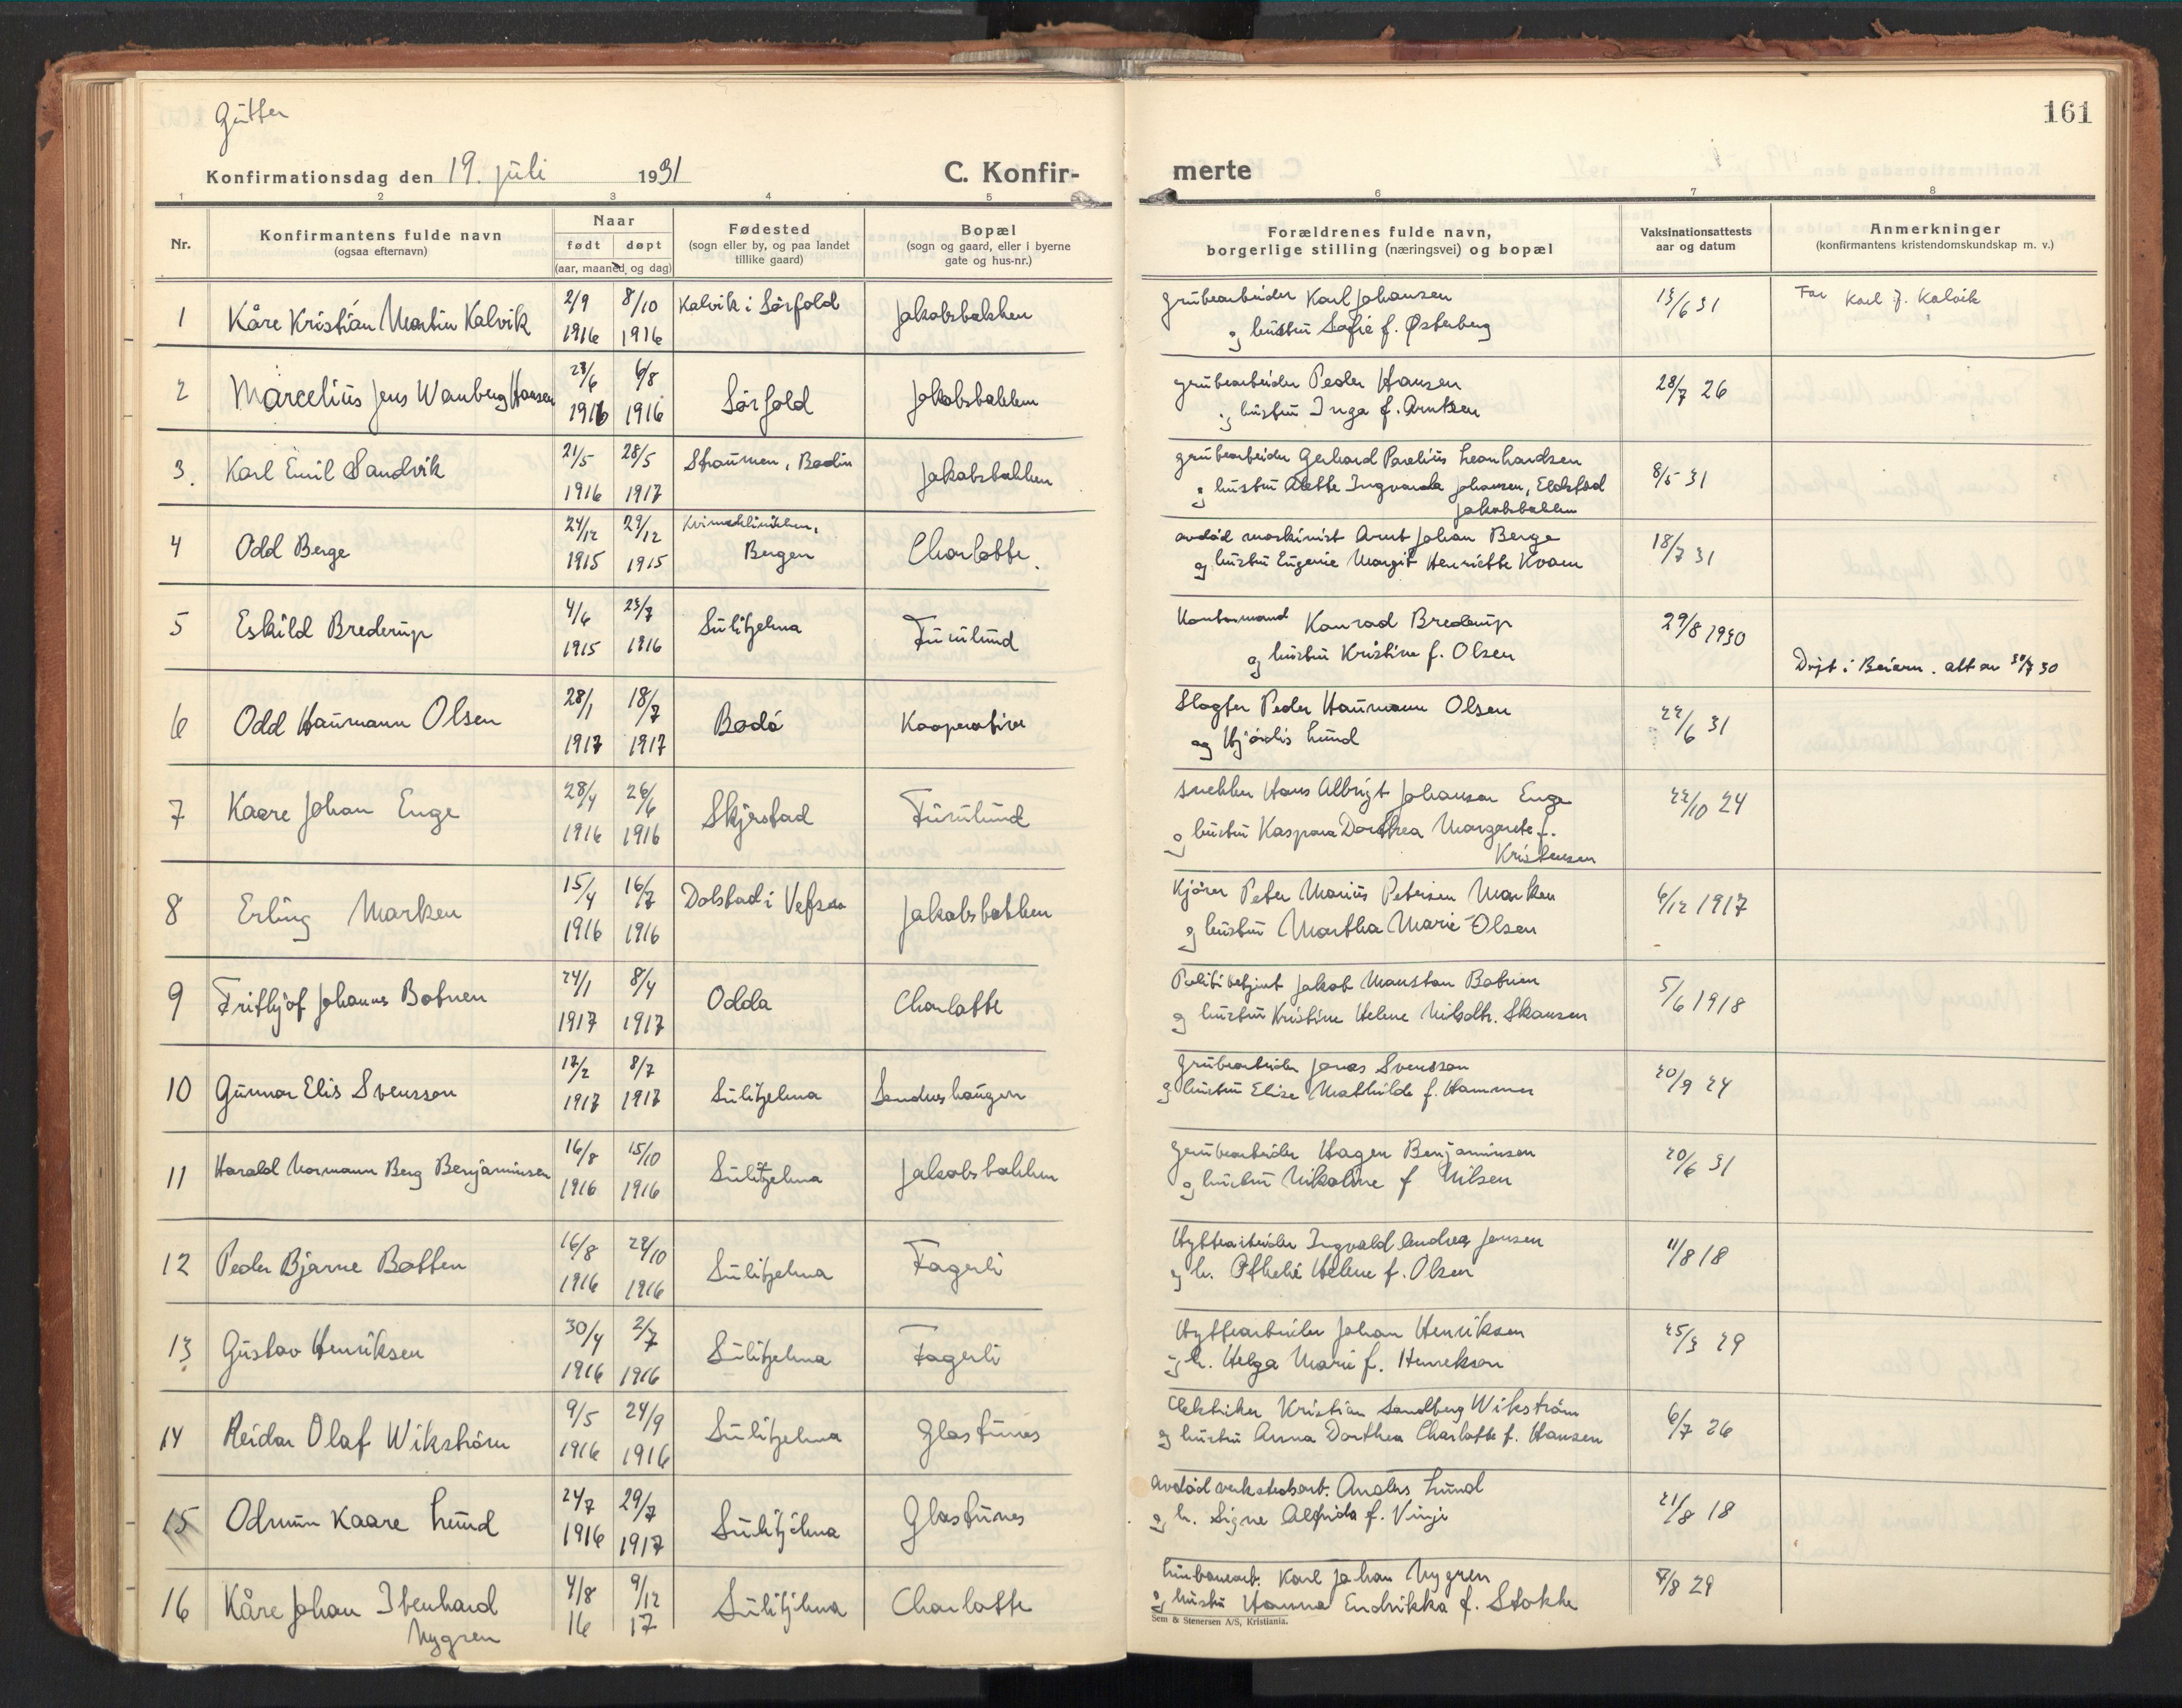 Gutter
161
Konfirmationsdag den 19. juli 1931
C. Konfir-
merte
1 2 3 4 5 6 7 8
Nr.
Konfirmantens fulde navn
(ogsaa efternavn)
Naar
født døpt
(aar, maaned og dag)
Fødested
(sogn eller by, og paa landet
tillike gaard)
Bopæl
(sogn og gaard, eller i byerne
gate og hus-nr.)
Forældrenes fulde navn,
borgerlige stilling (næringsvei) og bopæl
Vaksinationsattests
aar og datum
Anmerkninger
(konfirmantens kristendomskundskap m. v.)
1 Kåre Kristian Martin Kalvik 2/9 1916 8/10 1916 Kalvik i Sörfold Jakobsbakken
grubearbeider Karl Johansen
og hustru Sofie f. Østerberg
13/6 31
Far Karl J. Kalvik
2 Marcelius Jens Wanberg Hansen 23/6 1916 6/8 1916 Sörfold Jakobsbakken
grubearbeider Peder Hansen
og hustru Inga f. Arntsen
28/7 26
3. Karl Emil Sandvik 21/5 1916 28/5 1917 Straumen, Bodin Jakobsbakken
grubearbeider Gerhard Parelius Leonhardsen
og hustru Alette Ingvarda Johansen, Eldstad
Jakobsbakken
8/5 31
4 Odd Berge 24/12 1915 29/12 1915 Kvinneklinikken, Bergen Charlotte.
avdöd maskinist Arnt Johan Berge
og hustru Eugenie Margit Henriette Kvam
18/7 31
5 Eskild Brederup 4/6 1915 23/7 1916 Sulitjelma Furulund
Kontormand Konrad Brederup
og hustru Kristine f. Olsen
29/8 1930
Döpt i Beiarn. att av 30/7 30
6 Odd Haumann Olsen 28/1 1917 18/7 1917 Bodö Kooperativen
Slagter Peder Haumann Olsen
og Hjördis Lund
22/6 31
7 Kaare Johan Enge 28/4 1916 26/6 1916 Skjerstad Furulund
snekker Hans Albrigt Johansen Enge
og hustru Kaspara Dorthea Margarete f.
Kristensen
22/10 24
8 Erling Marken 15/4 1916 16/7 1916 Dolstad i Vefsn Jakobsbakken
Kjörer Peter Marius Petersen Marken
og hustru Martha Marie Olsen
6/12 1917
9 Frithjof Johannes Botnen 24/1 1917 8/4 1917 Odda Charlotte
Politibetjent Jakob Botnen
og hustru Kristine Helene Nilsdtr. Skansen
5/6 1918
10 Gunnar Elis Svensson 17/2 1917 8/7 1917 Sulitjelma Sandneshaugen
Grubearbeider Jonas Svensson
og hustru Elise Mathilde f. Hammer
20/9 24
11 Harald Normann Berg Benjaminsen 16/8 1916 15/10 1916 Sulitjelma Jakobsbakken
grubearbeider Hagen Benjaminsen
og hustru Nikoline f Nilsen
20/6 31
12 Peder Bjarne Botten 16/8 1916 22/10 1916 Sulitjelma Fagerli
Hyttearbeider Ingvald Andreas Jensen
og h. Helene f. Olsen
11/8 18
13 Gustav Henriksen 30/4 1916 2/7 1916 Sulitjelma Fagerli
Hyttearbeider Johan Henriksen
og h. Helga Marie f. Henrekson
25/3 29
14 Reidar Olaf Wikström 9/5 1916 24/9 1916 Sulitjelma Glastunes
Elektriker Kristian Sandberg Wikström
og hustru Anna Dorthea Charlotte f. Hansen
6/7 26
15 Odmun Kaare Lund 24/7 1916 29/7 1917 Sulitjelma Glastunes
Avdöd verkstedsarb. Anders Lund
og h. Signe Alfrida f. Vinje
21/8 18
16 Kåre Johan Ibenhard 4/8 16 9/12 17 Sulitjelma Charlotte
Nygren
Karl Johan Nygren
og hustru Hanna Endrikka f. Stokke
7/8 29
Sem & Stenersen A/S, Kristiania.